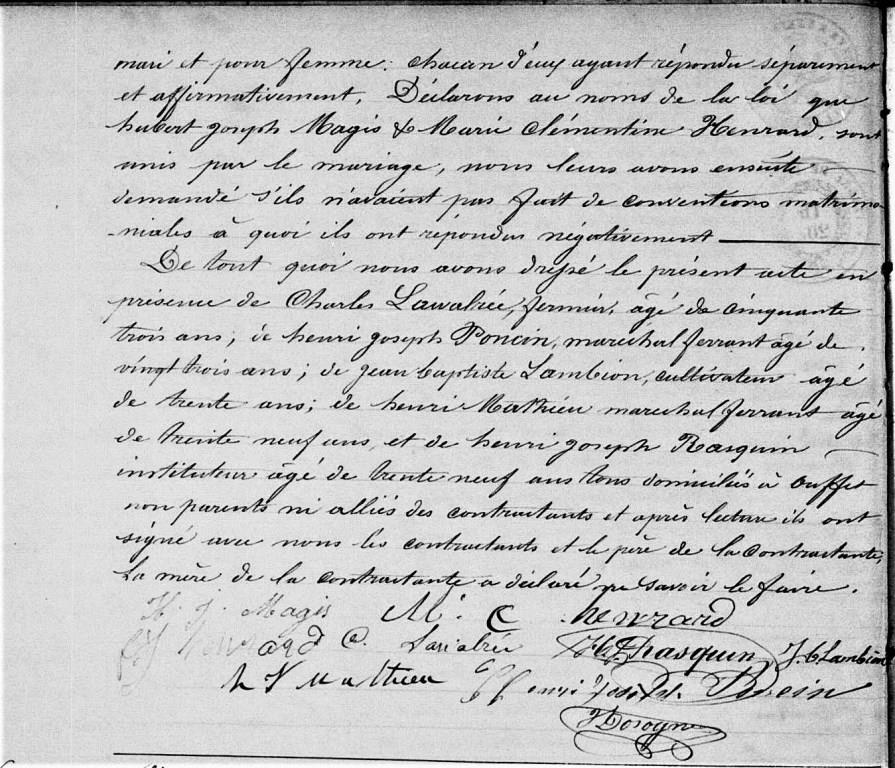 mari et pour femme: chacun d'eux ayant répondu séparément
et affirmativement, Déclarons au noms de la loi que
hubert joseph Magis & Marie Clémentine Henrard, sont
unis par le mariage, nous leurs avons ensuite
demandé s'ils n'avaient pas fait de conventions matrimo
-niales à quoi ils ont répondus négativement
De tout quoi nous avons dressé le présent acte en
présence de Charles Lawalrée, fermier, âgé de cinquante
trois ans; de henri joseph Poncin, marechal ferrant âgé de
vingt trois ans; de jean baptiste Lambion, cultivateur âgé
de trente ans; de henri Mathieu marechal ferrant âgé
de trente neuf ans, et de henri joseph Rasquin
instituteur âgé de trente neuf ans tous domiciliés à ouffet
non parents ni alliés des contractants et après lecture ils ont
signé avec nous les contractants et le père de la contractante,
La mère de la contractante a déclaré ne savoir le faire.
H. J. Magis M. C henrard
henrard C. Lawalrée HJ Rasquin J. B Lambion
h J Mathieu henri Joseph Poncin